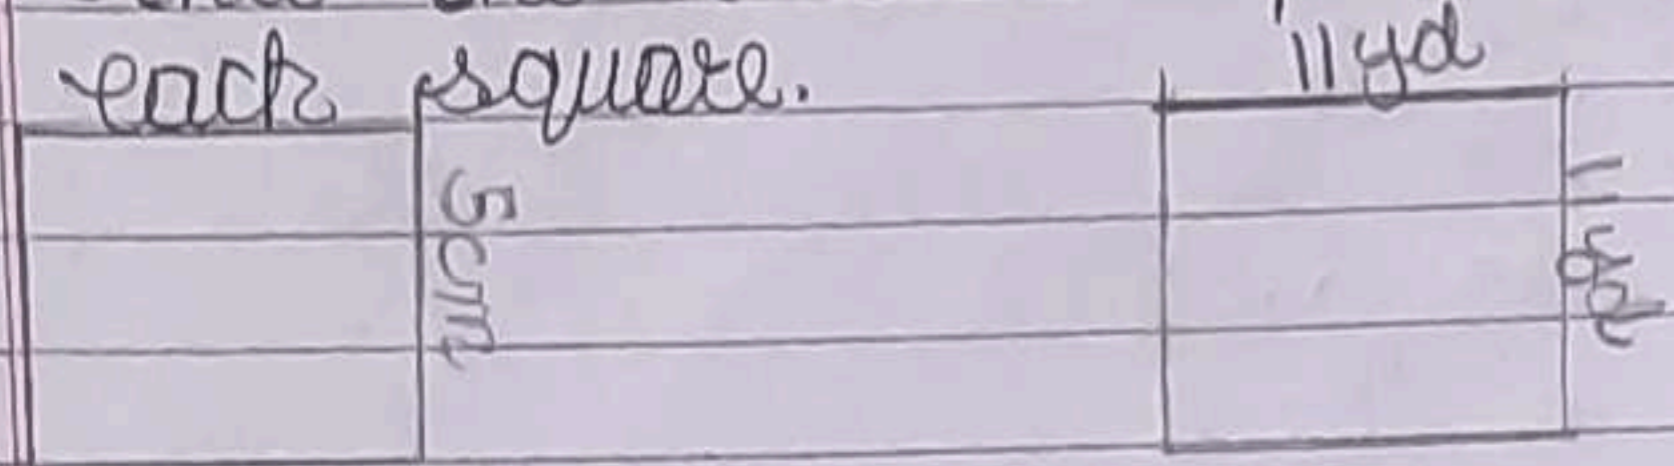 each square.
11 yd
5cm
11 yd